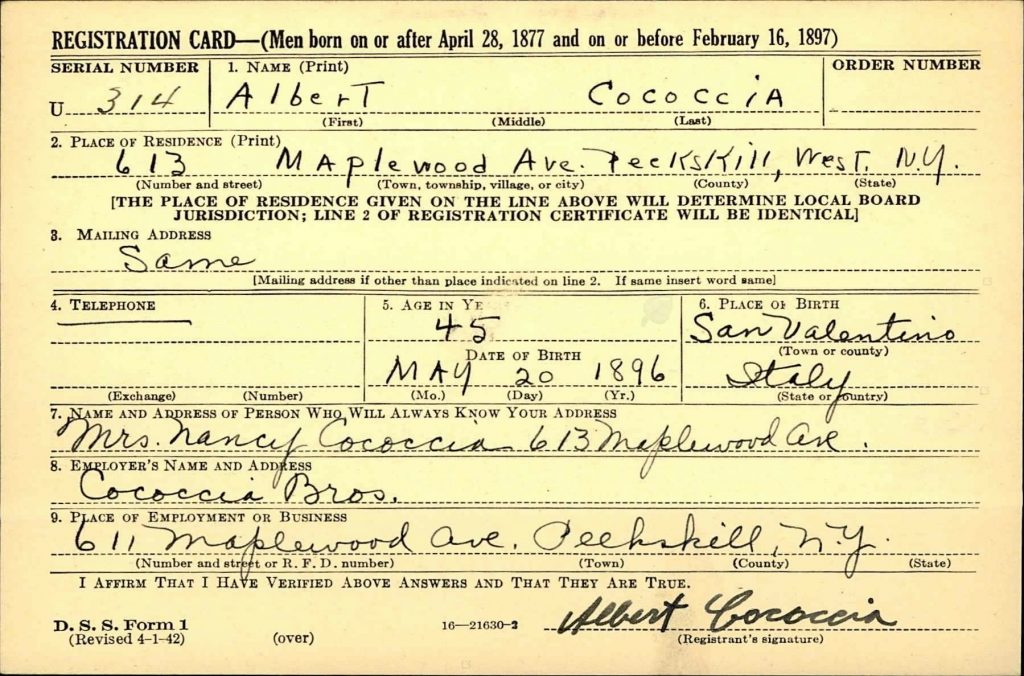 REGISTRATION CARD—(Men born on or after April 28, 1877 and on or before February 16, 1897)
SERIAL NUMBER 1. NAME (Print) ORDER NUMBER
U 314 Albert Cococcia
(First) (Middle) (Last)
2. PLACE OF RESIDENCE (Print)
613 Maplewood Ave. Peekskill, West. N.Y.
(Number and street) (Town, township, village, or city) (County) (State)
[THE PLACE OF RESIDENCE GIVEN ON THE LINE ABOVE WILL DETERMINE LOCAL BOARD
JURISDICTION; LINE 2 OF REGISTRATION CERTIFICATE WILL BE IDENTICAL]
3. MAILING ADDRESS
Same
[Mailing address if other than place indicated on line 2. If same insert word same]
4. TELEPHONE 5. AGE IN YE 6. PLACE OF BIRTH
45 San Valentino
DATE OF BIRTH (Town or county)
MAY 20 1896 Italy
(Exchange) (Number) (Mo.) (Day) (Yr.) (State or country)
7. NAME AND ADDRESS OF PERSON WHO WILL ALWAYS KNOW YOUR ADDRESS
Mrs. Nancy Cococcia 613 Maplewood Ave.
8. EMPLOYER'S NAME AND ADDRESS
Cococcia Bros.
9. PLACE OF EMPLOYMENT OR BUSINESS
611 Maplewood Ave. Peekskill, N.Y.
(Number and street or R. F. D. number) (Town) (County) (State)
I AFFIRM THAT I HAVE VERIFIED ABOVE ANSWERS AND THAT THEY ARE TRUE.
Albert Cococcia
D. S. S. Form 1 16—21630-2
(Revised 4-1-42) (over) (Registrant's signature)